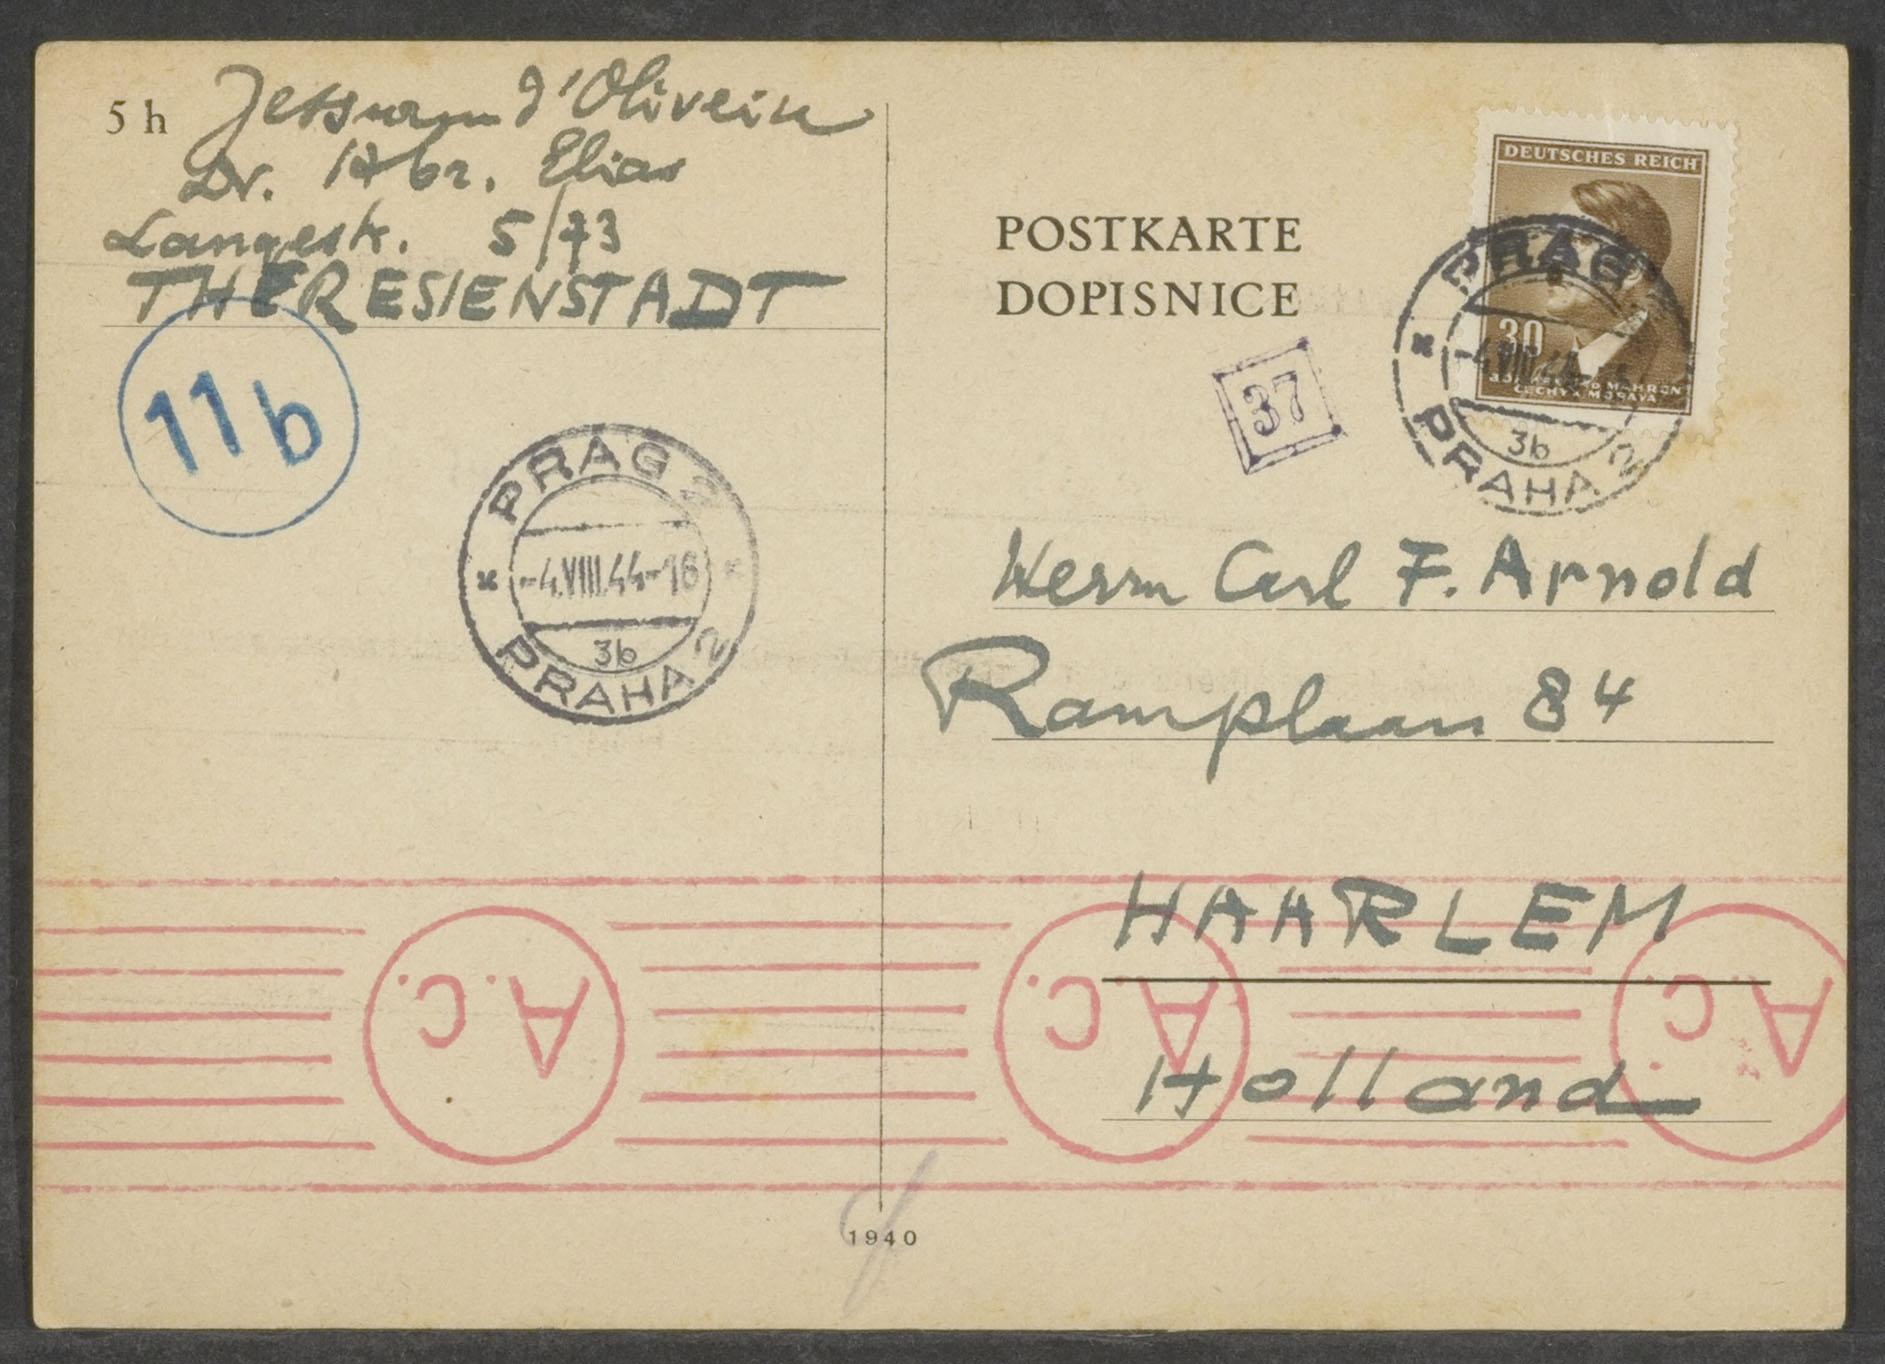 5 h
Jessurun d'Oliveira
Dr. Abr. Elias
Langestr. 5/73
THERESIENSTADT
11b
PRAG 2
-4.VIII.44-16
3b
PRAHA 2
POSTKARTE
DOPISNICE
37
DEUTSCHES REICH
30
BÖHMEN UND MÄHREN
ČECHY A MORAVA
PRAG
-4.VIII.44
3b
PRAHA 2
Herrn Carl F. Arnold
Ramplaan 84
HAARLEM
Holland
A.C.
A.C.
A.C.
1940